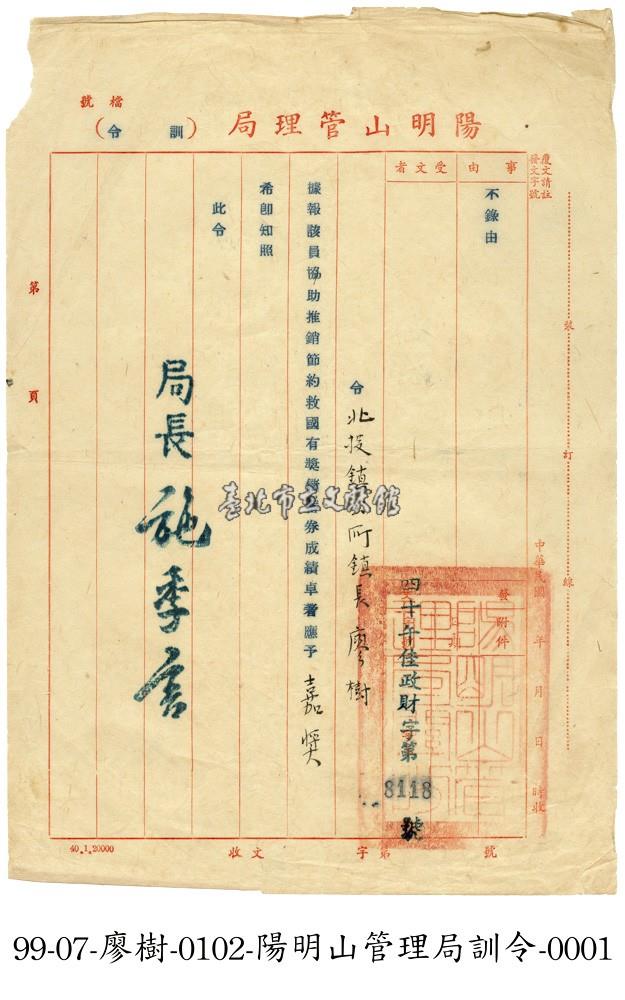 檔號
陽明山管理局（訓令）
覆文請註
發文字號
裝訂線
事由
不錄由
受文者
中華民國 年 月 日 時收
發附件
四十年佳政財字第8118號
令北投鎮公所鎮長廖樹
據報該員協助推銷節約救國有獎儲蓄券成績卓著應予嘉獎
希卽知照
此令
局長施季言
第 頁
收文 字第 號
40.1.20000
臺北市立文獻館
99-07-廖樹-0102-陽明山管理局訓令-0001